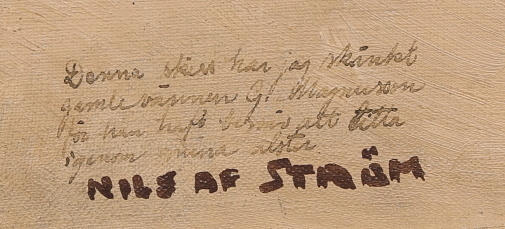 Denna skiss har jag skänkt
gamle vännen G. Magnusson
för han haft besvär att titta
igenom mina alster
NILS AF STRÖM